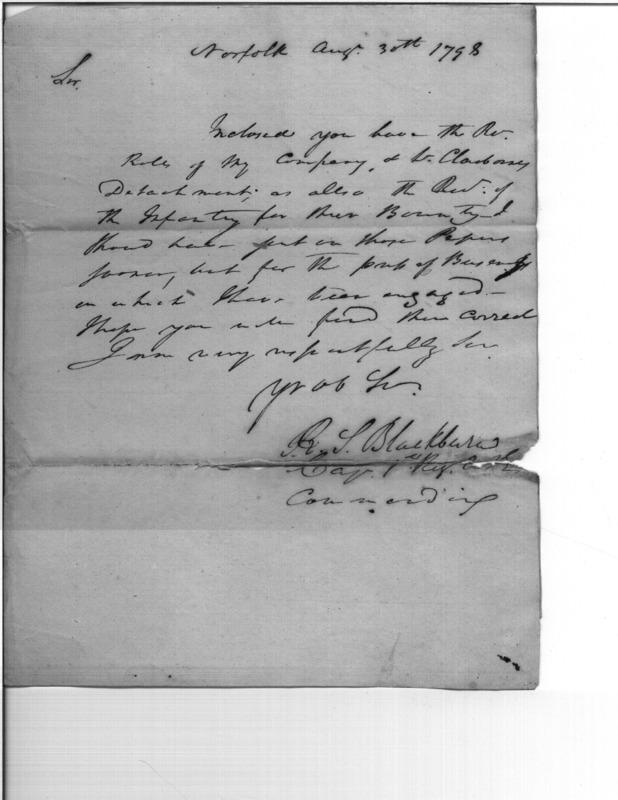 Norfolk Augt. 30th 1798
Sir.
Inclosed you have the Re.
Rolls of My Company, & Lt. Claibornes
Detachment; as allso the Recd. of
the Infantry for their Bounty I
should have sent on those Papers
sooner, but for the press of Buseness
in which I have been engaged –
I hope you will find them correct
I am very respectfully Sir
yr ob Sr.
R. S. Blackburn
Cap. 1st Reg.
Commanding